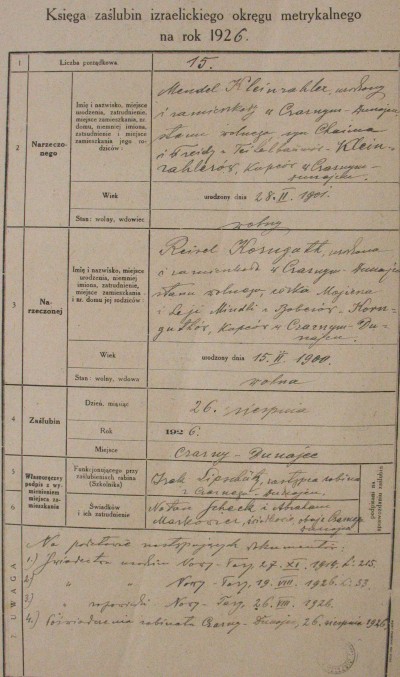 Księga zaślubin izraelickiego okręgu metrykalnego
na rok 1926.
1 Liczba porządkowa 15.
2 Narzeczonego
Imię i nazwisko, miejsce
urodzenia, zatrudnienie,
miejsce zamieszkania, nr.
domu, niemniej imiona,
zatrudnienie i miejsce
zamieszkania jego rodziców:
Mendel Kleinzahler, urodzony
i zamieszkały w Czarnym-Dunajcu,
stanu wolnego, syn Chaima
i Freidy z Klein-
zahlerów, kupców w Czarnym-
Dunajcu.
Wiek urodzony dnia 28. 1901.
Stan: wolny, wdowiec wolny
3 Narzeczonej
Imię i nazwisko, miejsce
urodzenia, niemniej
imiona, zatrudnienie,
miejsce zamieszkania
i nr. domu jej rodziców:
Reisel Korngutt, urodzona
i zamieszkała w Czarnym-Dunajcu
stanu wolnego, córka Majera
i Leji Mindli z Korn-
guttów, kupców w Czarnym-Du-
najcu.
Wiek urodzony dnia 15. 1900.
Stan: wolna, wdowa wolna
4 Zaślubin
Dzień, miesiąc 26. sierpnia
Rok 1926.
Miejsce Czarny-Dunajec
5 Własnoręczny podpis z wymienieniem miejsca zamieszkania
Funkcjonującego przy
zaślubinach rabina
(Szkolnika)
Izak Lipschütz, zastępca rabina
z Czarnego-Dunajca.
6 Świadków
i ich zatrudnienie
Natan Scheck i Abraham
Markowicz,
podpisani na
UWAGA
Na podstawie następujących dokumentów:
1.) Świadectwo urodzin Nowy-Targ 27. XI. 1918, L: 215.
2.) " " Nowy-Targ, 19. VIII. 1926. L: 53.
3.) " zapowiedzi Nowy-Targ, 26. VIII. 1926.
4.) Poświadczenia rabinatu Czarny-Dunajec, 26. sierpnia 1926.